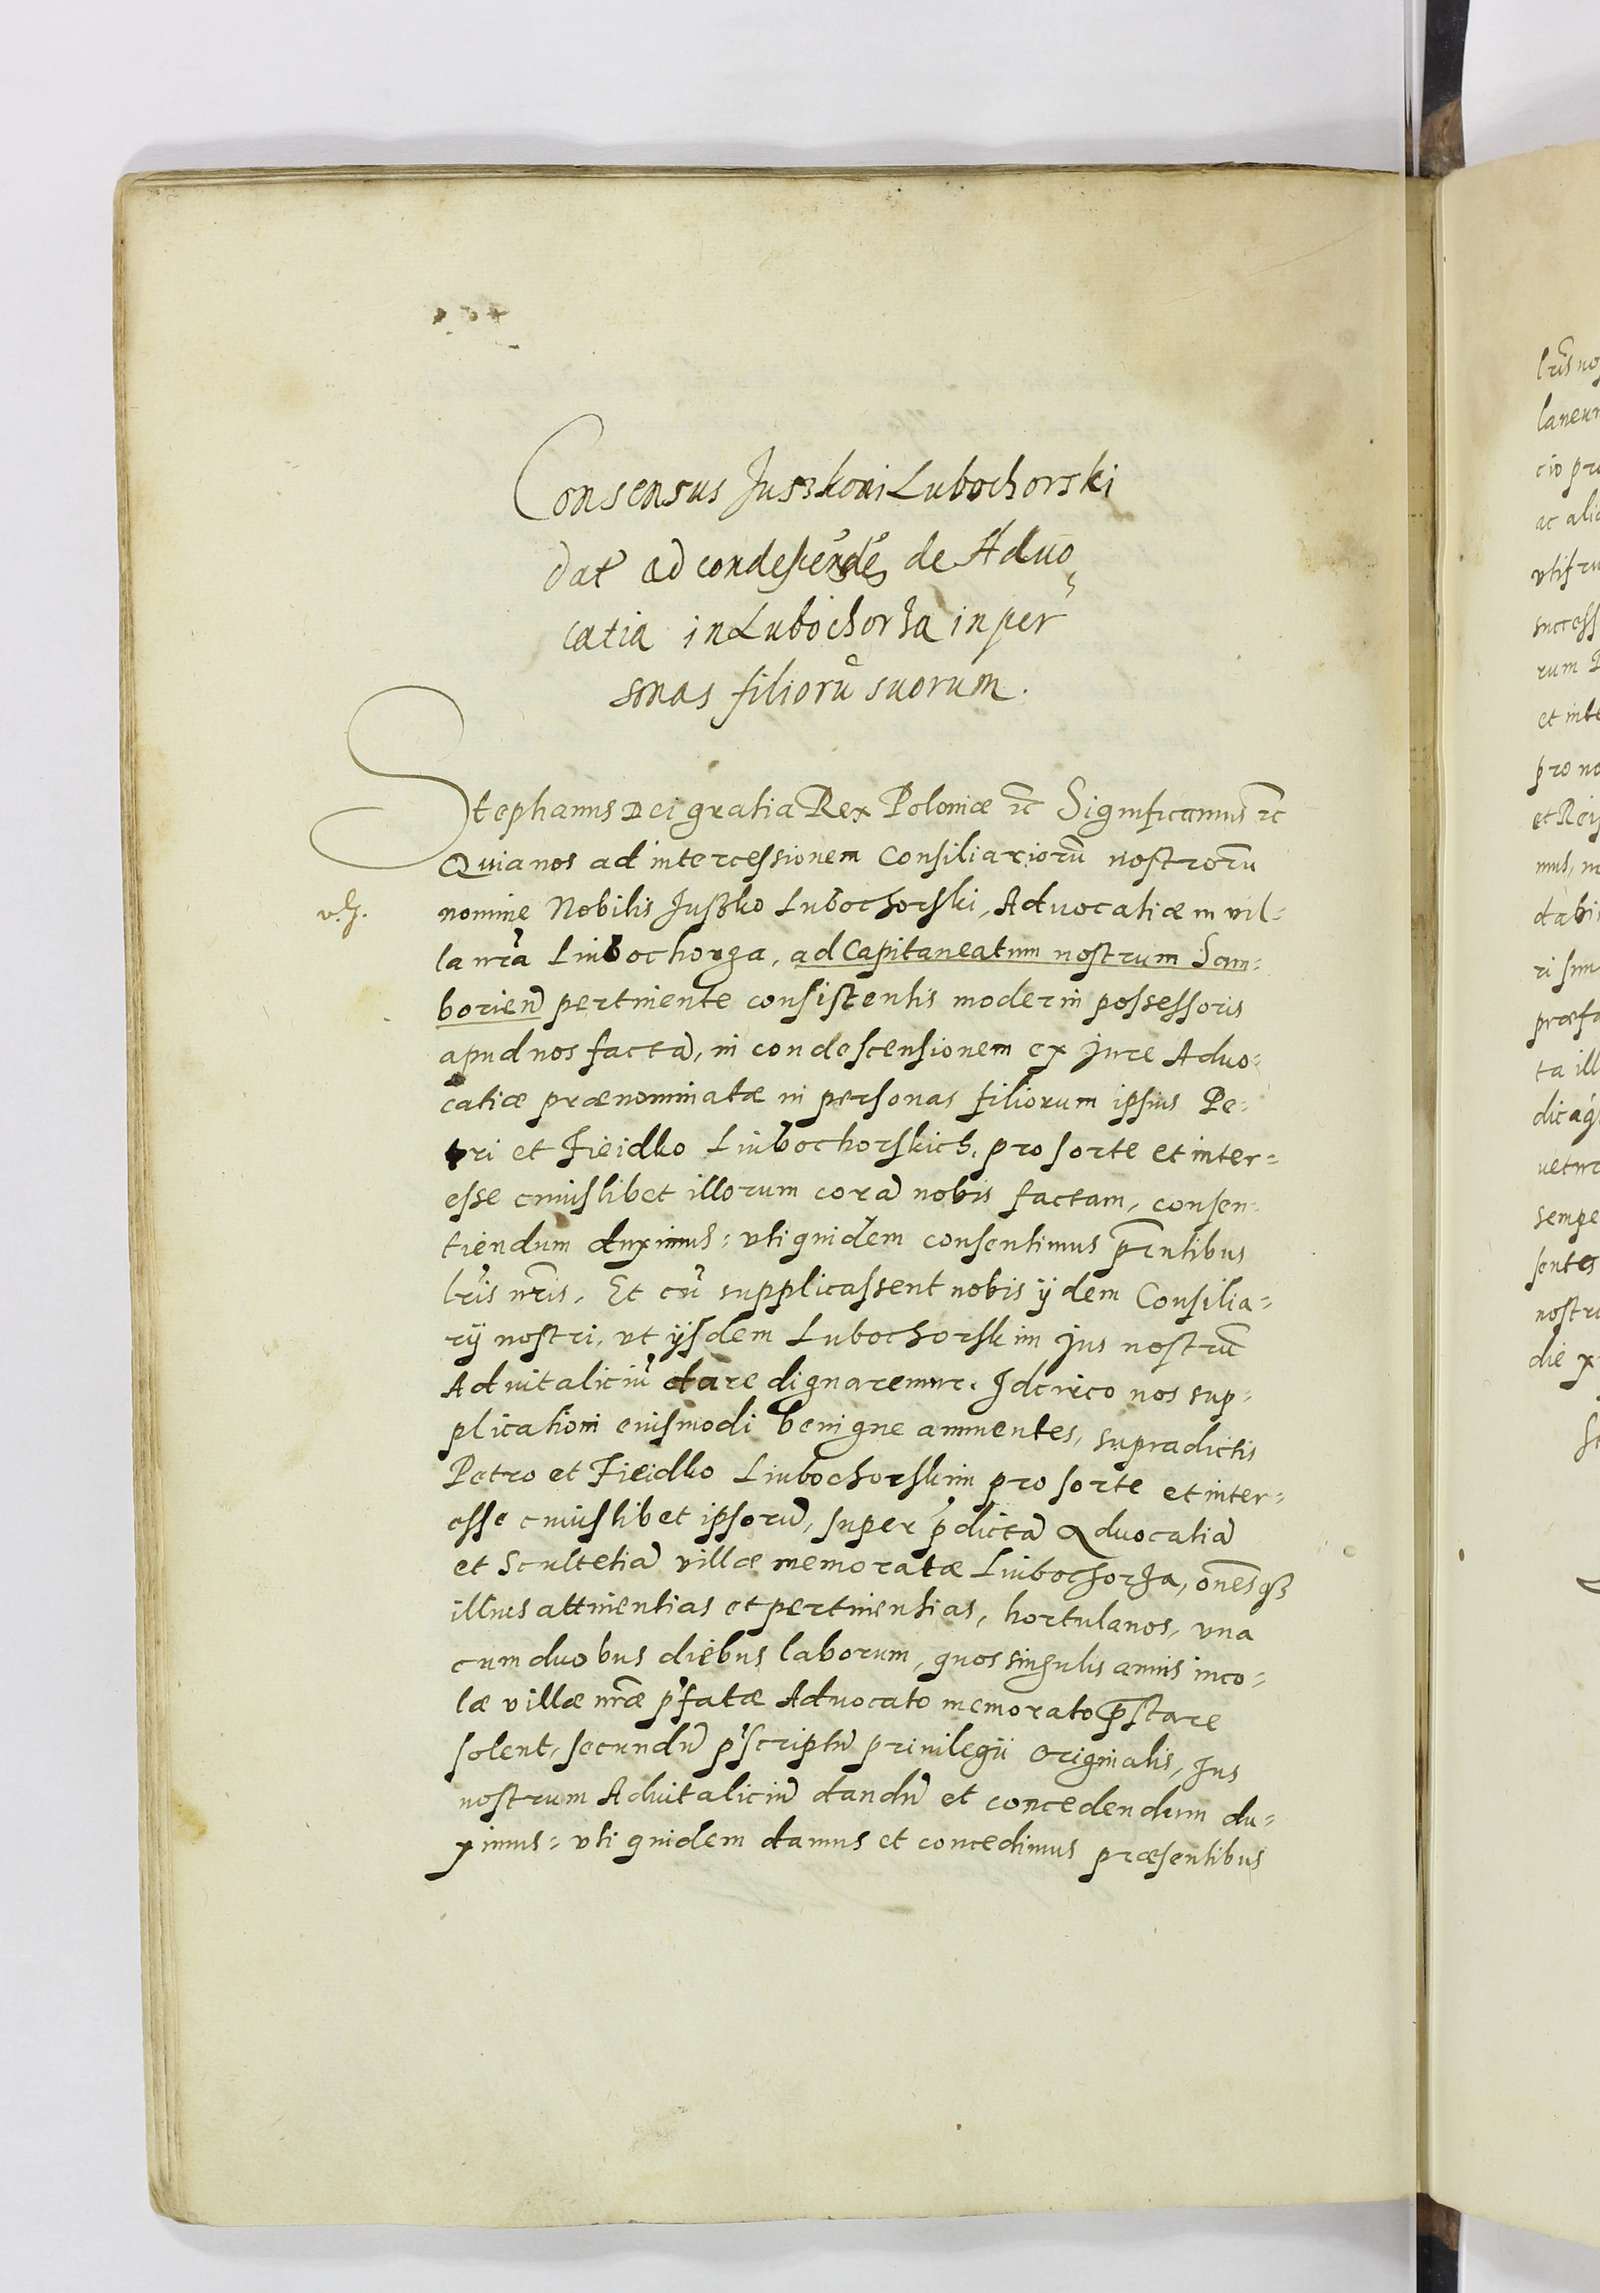 Consensus Juszkoni Lubochorski
dat ad condescendẽ de Aduo,
catia in Lubochorza in per
sonas filiorũ suorum.
Stephanus Dei gratia Rex Poloniæ ꝛc Significamus ꝛc
Quia nos ad intercessionem Consiliariorũ nostrorũ
v.h.
nomine Nobilis Juszko Lubochorski, Aduocatiæ in vil-
la nr̃a Liubochorza, ad Capitaneatum nostrum Sam-
borien̄ pertinente consistentis moderni possessoris
apud nos factã, in condescensionem ex jure Aduo-
catiæ prænominatæ in personas filiorum ipsius Pe-
tri et Fieidko Liubochorskich, pro sorte et inter-
esse cuiuslibet illorum corã nobis factam, consen-
tiendum duximus: vti quidem consentimus pr̃ntibus
lr̃is nr̃is. Et cũ supplicassent nobis ijdem Consilia-
rij nostri, vt ijsdem Lubochorskim jus nostrũ
Aduitaliciũ dare dignaremur. Idcirco nos sup-
plicationi eiusmodi benigne annuentes, supradictis
Petro et Fieidko Liubochorskim pro sorte et inter-
esse cuiuslibet ipsorũ, super p̃dictã Aduocatiã
et Scultetiã villæ memoratæ Liubochorza, om̃esqȝ
illius attinentias et pertinentias, hortulanos, vna
cum duobus diebus laborum, quos singulis annis inco-
læ villæ nr̃æ p̃fatæ Aduocato memorato p̃stare
solent, secundũ p̃scriptũ priuilegii originalis, Jus
nostrum Aduitaliciũ dandũ et concedendum du-
ximus: vti quidem damus et concedimus præsentibus
lr̃is no
laneum
cio pr
ac ali
vtifru
success
rum
et inte
pro no
et Rei
mus,
dabi
ri
præfa
ta ill
semper
sentes
nostr
die x